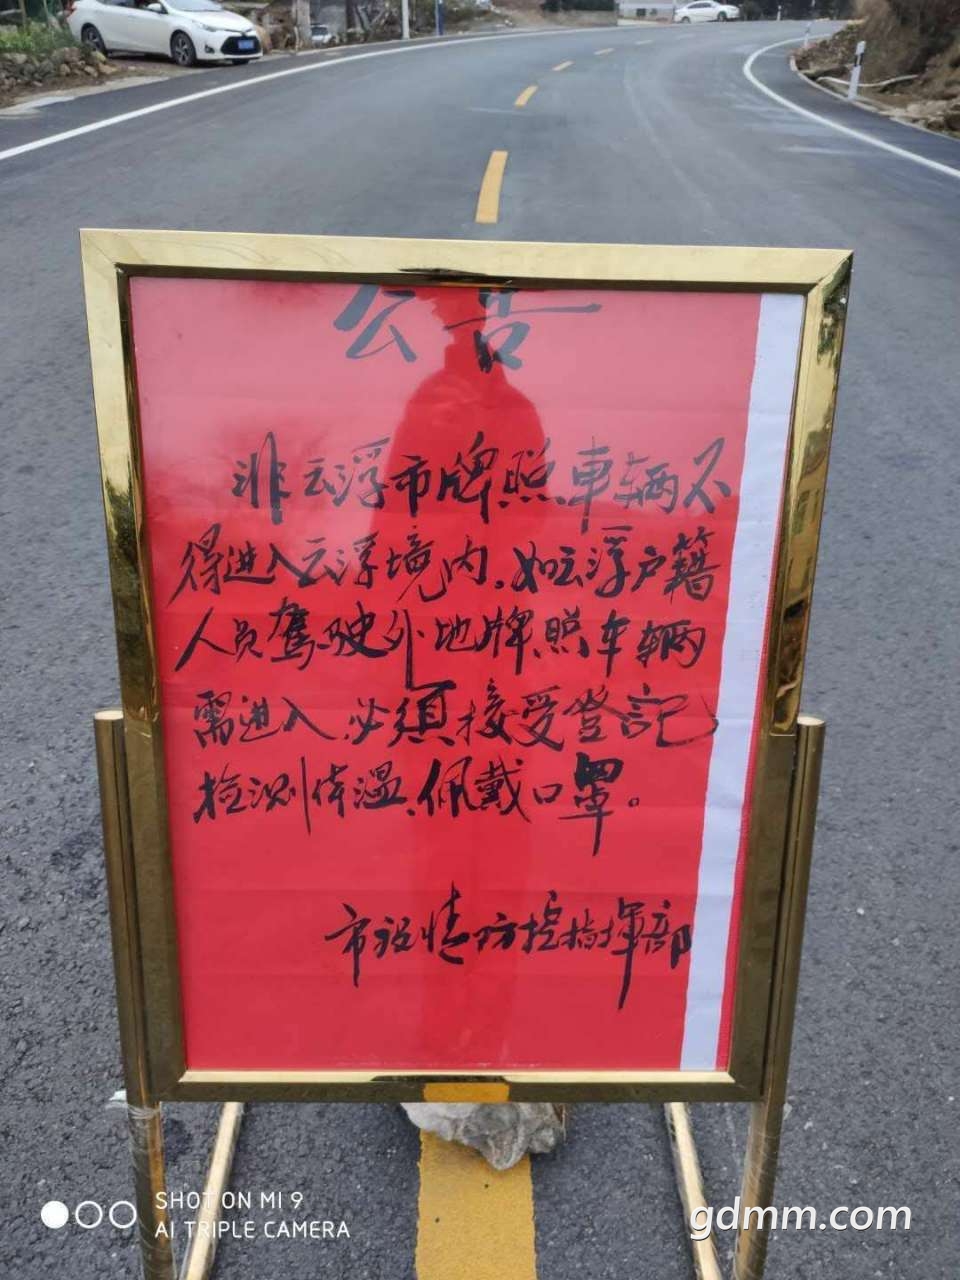 公告
非云浮市牌照車辆不
得进入云浮境内。如云浮户籍
人员驾驶外地牌照车辆
需进入必须接受登记
检测体温、佩戴口罩。
市疫情防控指挥部
SHOT ON MI 9
AI TRIPLE CAMERA
gdmm.com